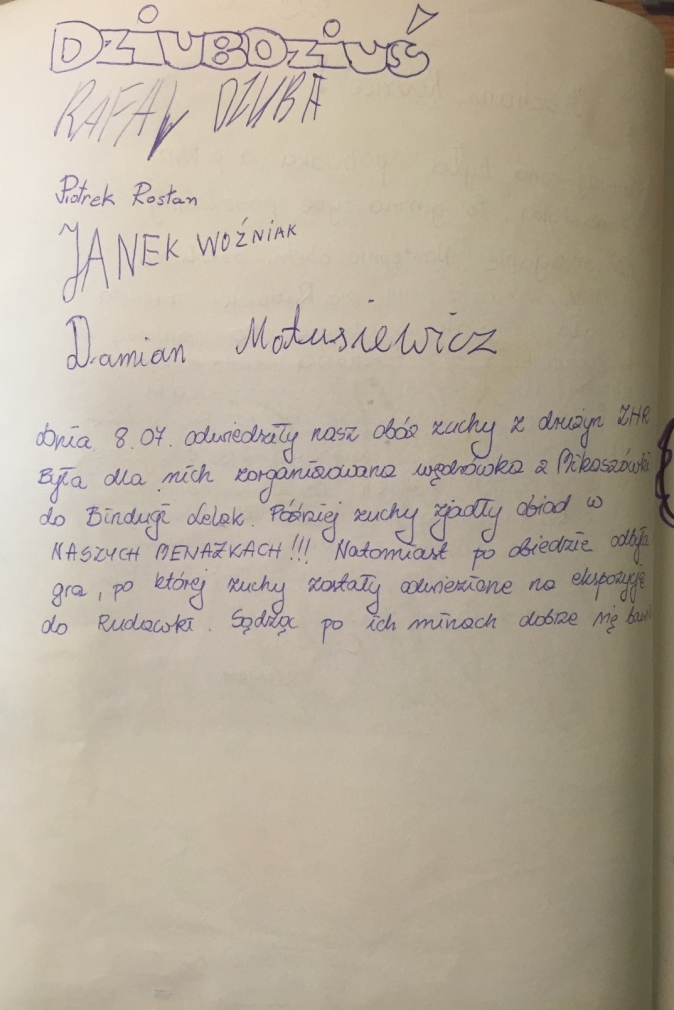 DZIUBDZIUŚ
RAFAŁ DZIUBA
Piotrek Rostan
JANEK WOŹNIAK
Damian Matusiewicz
dnia 8.07. odwiedziły nasz obóz zuchy z drużyn ZHR
Była dla nich zorganizowana wędrówka z Mikaszówki
do Bindugi Lelek. Później zuchy zjadły obiad w
NASZYCH MENAŻKACH!!! Natomiast po obiedzie odbyła
gra, po której zuchy zostały odwiezione na ekspozycję
do Rudawki. Sądząc po ich minach dobrze się